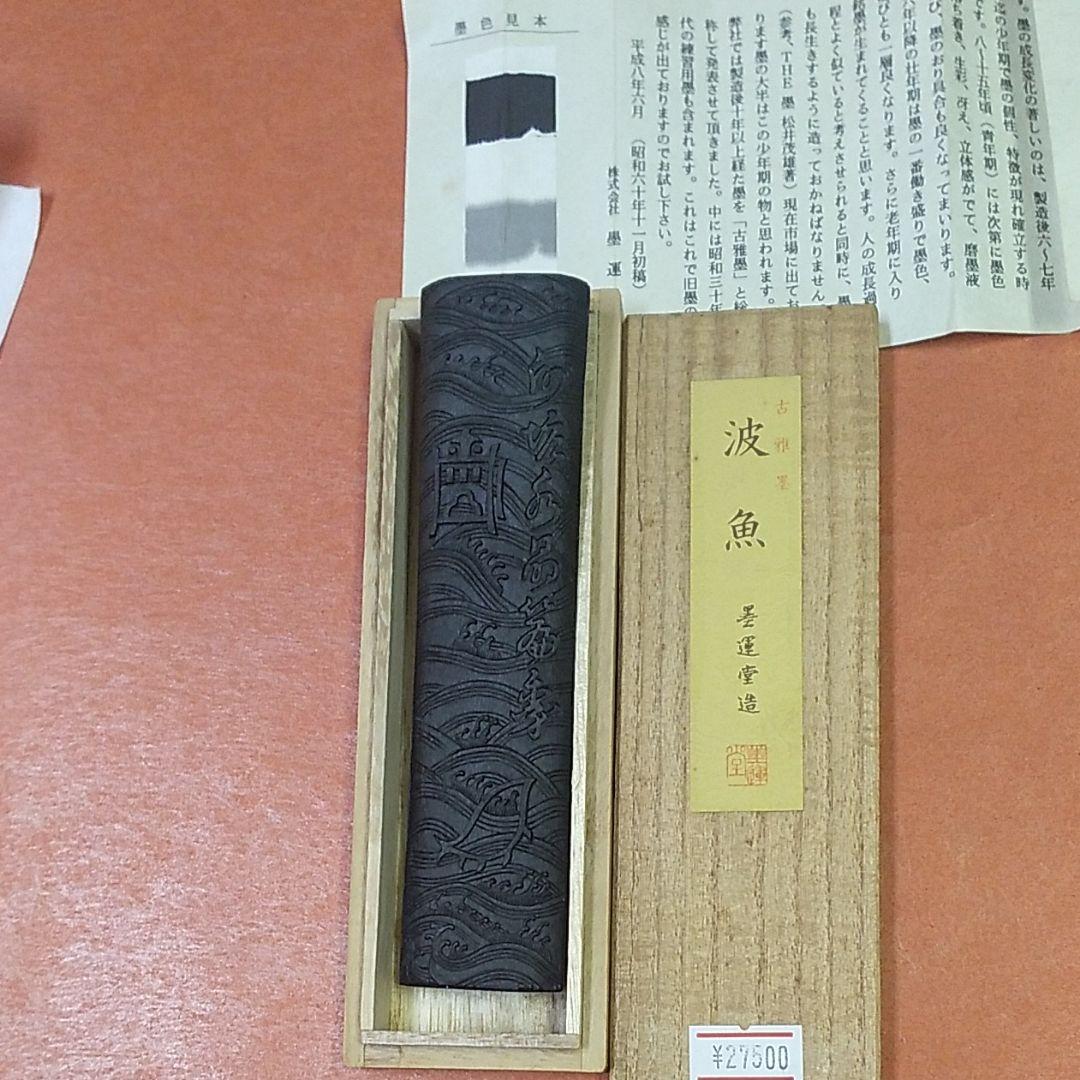 墨色見本
す。墨の成長変化の著しいのは、製造後六〜七年
迄の少年期で墨の個性、特徴が現れ確立する時
です。八〜十五年頃（青年期）には次第に墨色
ち着き、生彩、冴え、立体感がでて、磨墨液
び、墨のおり具合も良くなってまいります。
六年以降の壮年期は墨の一番働き盛りで墨色、
びとも一層良くなります。さらに老年期に入り
銘墨が生まれてくることと思います。人の成長過
程とよく似ていると考えさせられると同時に、墨
も長生きするように造っておかねばなりません
（参考、THE 墨 松井茂雄著）現在市場に出てお
ります墨の大半はこの少年期の物と思われます。
弊社では製造後十年以上経た墨を「古雅墨」と
称して発表させて頂きました。中には昭和三十年
代の練習用墨も含まれます。これはこれで旧墨の
感じが出ておりますのでお試し下さい。
平成八年六月　（昭和六十年十一月初稿）
株式会社　墨運
古雅墨
波魚
墨運堂造
墨運堂
¥27500